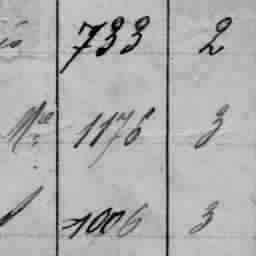 733 2
Na 1176 3
1006 3